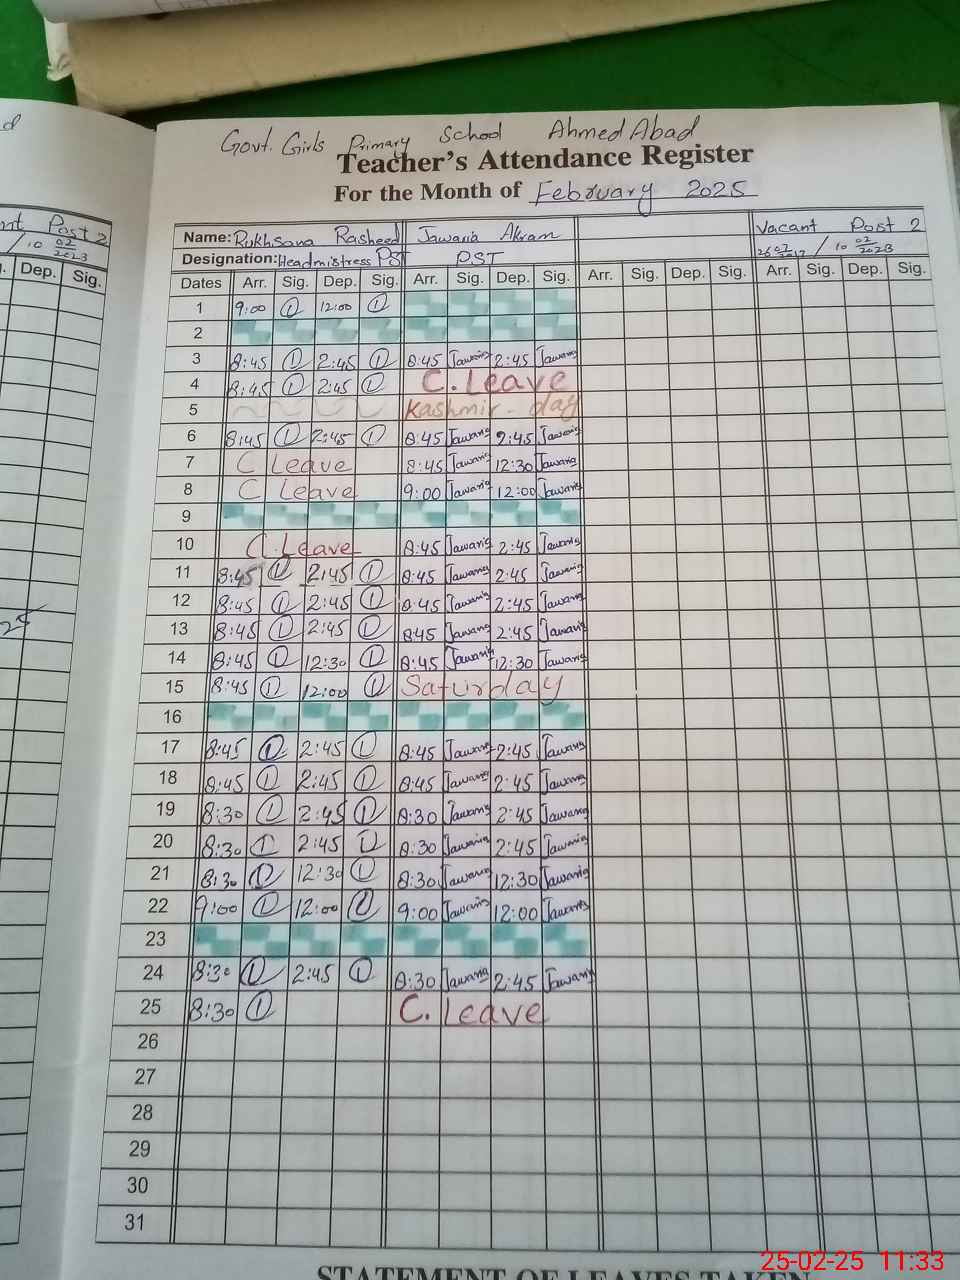 Govt. Girls Primary School Ahmed Abad
Teacher's Attendance Register
For the Month of February 2025
Name: Rukhsana Rasheed Jawaria Akram Vacant Post 2
Designation: Headmistress PST PST 10 02/2023
Dates Arr. Sig. Dep. Sig. Arr. Sig. Dep. Sig. Arr. Sig. Dep. Sig. Arr. Sig. Dep. Sig.
1 9:00 12:00
2
3 8:45 2:45 8:45 Jawaria 2:45 Jawaria
4 8:45 2:45 C. Leave
5 Kashmir - day
6 8:45 2:45 8:45 Jawaria 2:45 Jawaria
7 C Leave 8:45 Jawaria 12:30 Jawaria
8 C Leave 9:00 Jawaria 12:00 Jawaria
9
10 C. Leave 8:45 Jawaria 2:45 Jawaria
11 8:45 2:45 8:45 Jawaria 2:45 Jawaria
12 8:45 2:45 8:45 Jawaria 2:45 Jawaria
13 8:45 2:45 8:45 Jawaria 2:45 Jawaria
14 8:45 12:30 8:45 Jawaria 12:30 Jawaria
15 8:45 12:00 Saturday
16
17 8:45 2:45 8:45 Jawaria 2:45 Jawaria
18 8:45 2:45 8:45 Jawaria 2:45 Jawaria
19 8:30 2:45 8:30 Jawaria 2:45 Jawaria
20 8:30 2:45 8:30 Jawaria 2:45 Jawaria
21 8:30 12:30 8:30 Jawaria 12:30 Jawaria
22 9:00 12:00 9:00 Jawaria 12:00 Jawaria
23
24 8:30 2:45 8:30 Jawaria 2:45 Jawaria
25 8:30 C. Leave
26
27
28
29
30
31
STATEMENT OF LEAVES TAKEN
Post 2
10 02/2023
Dep. Sig.
25
25-02-25 11:33